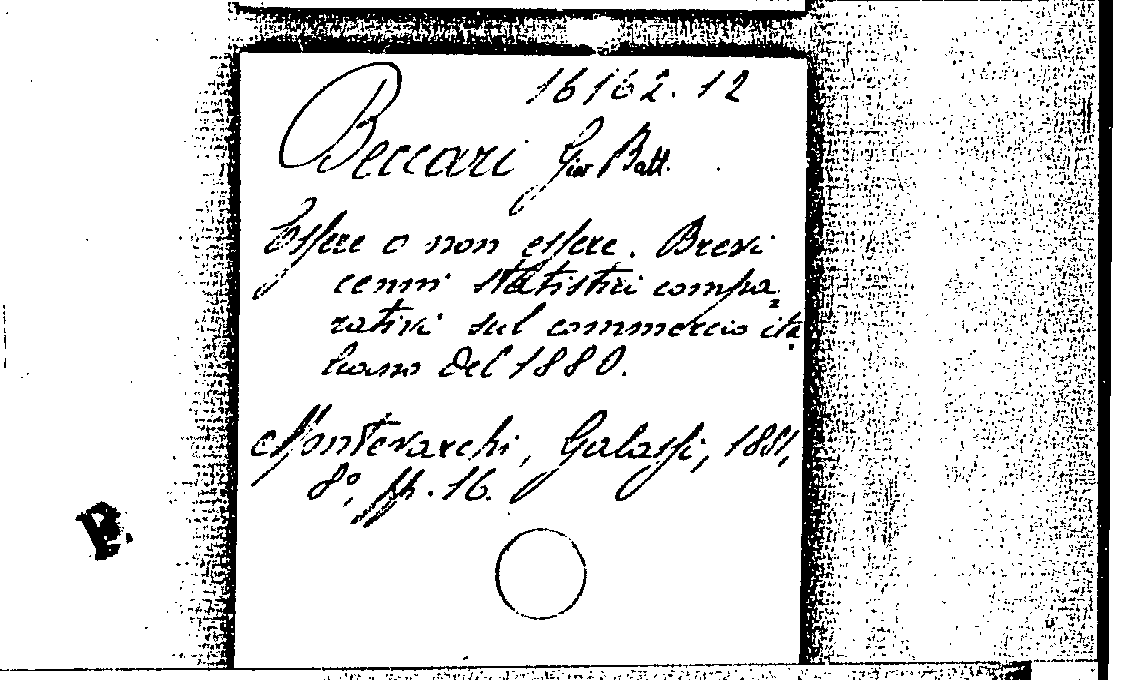 16162.12
Beccari Gio Batt.
Essere o non essere. Brevi
cenni statistici compa=
rativi sul commercio ita=
liano del 1880.
Montevarchi, Galassi, 1881,
8°, pp. 16.
B.